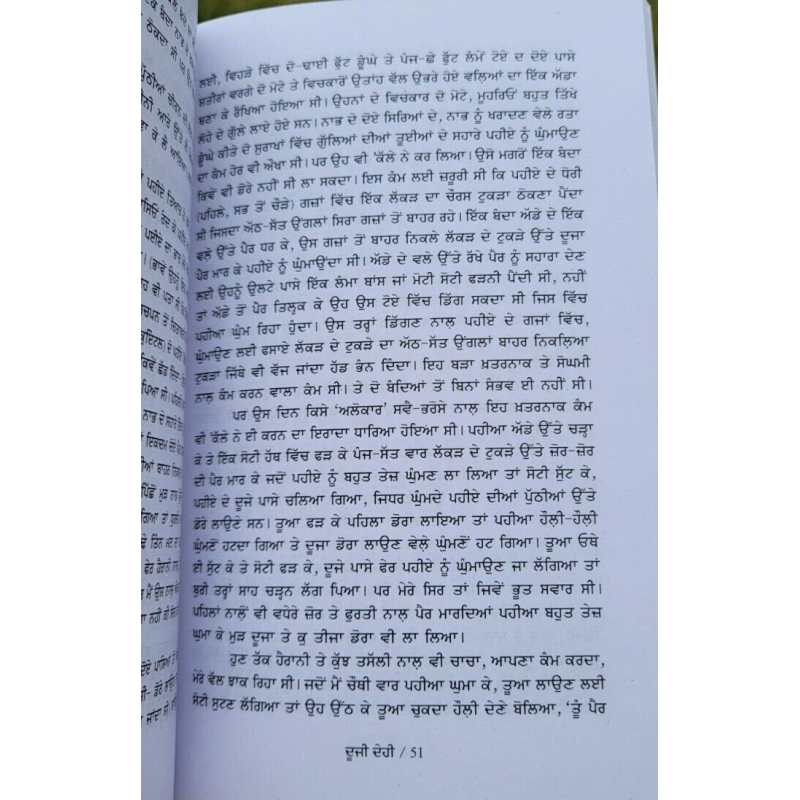 ਲਈ, ਵਿਹੜੇ ਵਿੱਚ ਦੋ-ਢਾਈ ਫੁੱਟ ਡੂੰਘੇ ਤੇ ਪੰਜ-ਛੇ ਫੁੱਟ ਲੰਮੇਂ ਟੋਏ ਦ ਦੋਏ ਪਾਸੇ
ਸ਼ਤੀਰਾਂ ਵਰਗੇ ਦੋ ਮੋਟੇ ਤੇ ਵਿਚਕਾਰੋਂ ਉਤਾਂਹ ਵੱਲ ਉਭਰੇ ਹੋਏ ਵਲ੍ਹਿਆਂ ਦਾ ਇੱਕ ਅੱਡਾ
ਬਣਾ ਕੇ ਰੱਖਿਆ ਹੋਇਆ ਸੀ। ਉਹਨਾਂ ਦੇ ਵਿਚਕਾਰ ਦੋ ਮੋਟੇ, ਮੂਹਰਿਓਂ ਬਹੁਤ ਤਿੱਖੇ
ਲੋਹੇ ਦੇ ਗੁੱਲੇ ਲਾਏ ਹੋਏ ਸਨ। ਨਾਭ ਦੇ ਦੋਏ ਸਿਰਿਆਂ ਦੇ, ਨਾਭ ਨੂੰ ਖਰਾਦਣ ਵੇਲੇ ਰਤਾ
ਡੂੰਘੇ ਕੀਤੇ ਦੋ ਸੁਰਾਖਾਂ ਵਿੱਚ ਗੁੱਲਿਆਂ ਦੀਆਂ ਤੂਈਆਂ ਦੇ ਸਹਾਰੇ ਪਹੀਏ ਨੂੰ ਘੁੰਮਾਉਣ
ਦਾ ਕੰਮ ਹੋਰ ਵੀ ਔਖਾ ਸੀ। ਪਰ ਉਹ ਵੀ 'ਕੱਲੇ ਨੇ ਕਰ ਲਿਆ। ਉਸੋ ਮਗਰੋਂ ਇੱਕ ਬੰਦਾ
ਕਿਵੇਂ ਵੀ ਡੋਰੇ ਨਹੀਂ ਸੀ ਲਾ ਸਕਦਾ। ਇਸ ਕੰਮ ਲਈ ਜ਼ਰੂਰੀ ਸੀ ਕਿ ਪਹੀਏ ਦੇ ਧੋਰੀ
(ਪਹਿਲੇ, ਸਭ ਤੋਂ ਚੌੜੇ) ਗਜ਼ਾਂ ਵਿੱਚ ਇੱਕ ਲੱਕੜ ਦਾ ਚੌਰਸ ਟੁਕੜਾ ਠੋਕਣਾ ਪੈਂਦਾ
ਸੀ ਜਿਸਦਾ ਅੱਠ-ਸੱਤ ਉਂਗਲਾਂ ਸਿਰਾ ਗਜ਼ਾਂ ਤੋਂ ਬਾਹਰ ਰਹੇ। ਇੱਕ ਬੰਦਾ ਅੱਡੇ ਦੇ ਇੱਕ
ਵਲ੍ਹੇ ਉੱਤੇ ਪੈਰ ਧਰ ਕੇ, ਉਸ ਗਜ਼ਾਂ ਤੋਂ ਬਾਹਰ ਨਿਕਲੇ ਲੱਕੜ ਦੇ ਟੁਕੜੇ ਉੱਤੇ ਦੂਜਾ
ਪੈਰ ਮਾਰ ਕੇ ਪਹੀਏ ਨੂੰ ਘੁੰਮਾਉਂਦਾ ਸੀ। ਅੱਡੇ ਦੇ ਵਲੇ ਉੱਤੇ ਰੱਖੇ ਪੈਰ ਨੂੰ ਸਹਾਰਾ ਦੇਣ
ਲਈ ਉਹਨੂੰ ਉਲਟੇ ਪਾਸੇ ਇੱਕ ਲੰਮਾ ਬਾਂਸ ਜਾਂ ਮੋਟੀ ਸੋਟੀ ਫੜਨੀ ਪੈਂਦੀ ਸੀ, ਨਹੀਂ
ਤਾਂ ਅੱਡੇ ਤੋਂ ਪੈਰ ਤਿਲ੍ਹਕ ਕੇ ਉਹ ਉਸ ਟੋਏ ਵਿੱਚ ਡਿੱਗ ਸਕਦਾ ਸੀ ਜਿਸ ਵਿੱਚ
ਪਹੀਆ ਘੁੰਮ ਰਿਹਾ ਹੁੰਦਾ। ਉਸ ਤਰ੍ਹਾਂ ਡਿੱਗਣ ਨਾਲ਼ ਪਹੀਏ ਦੇ ਗਜਾਂ ਵਿੱਚ,
ਘੁੰਮਾਉਣ ਲਈ ਫਸਾਏ ਲੱਕੜ ਦੇ ਟੁਕੜੇ ਦਾ ਅੱਠ-ਸੱਤ ਉਂਗਲਾਂ ਬਾਹਰ ਨਿਕਲ਼ਿਆ
ਟੁਕੜਾ ਜਿੱਥੇ ਵੀ ਵੱਜ ਜਾਂਦਾ ਹੱਡ ਭੰਨ ਦਿੰਦਾ। ਇਹ ਬੜਾ ਖ਼ਤਰਨਾਕ ਤੇ ਸੋਘਮੀ
ਨਾਲ਼ ਕੰਮ ਕਰਨ ਵਾਲਾ ਕੰਮ ਸੀ। ਤੇ ਦੋ ਬੰਦਿਆਂ ਤੋਂ ਬਿਨਾਂ ਸੰਭਵ ਈ ਨਹੀਂ ਸੀ।
ਪਰ ਉਸ ਦਿਨ ਕਿਸੇ 'ਅਲੋਕਾਰ' ਸਵੈ-ਭਰੋਸੇ ਨਾਲ਼ ਇਹ ਖ਼ਤਰਨਾਕ ਕੰਮ
ਵੀ 'ਕੱਲੇ ਨੇ ਈ ਕਰਨ ਦਾ ਇਰਾਦਾ ਧਾਰਿਆ ਹੋਇਆ ਸੀ। ਪਹੀਆ ਅੱਡੇ ਉੱਤੇ ਚੜ੍ਹਾ
ਕੇ ਤੇ ਇੱਕ ਸੋਟੀ ਹੱਥ ਵਿੱਚ ਫੜ ਕੇ ਪੰਜ-ਸੱਤ ਵਾਰ ਲੱਕੜ ਦੇ ਟੁਕੜੇ ਉੱਤੇ ਜ਼ੋਰ-ਜ਼ੋਰ
ਦੀ ਪੈਰ ਮਾਰ ਕੇ ਜਦੋਂ ਪਹੀਏ ਨੂੰ ਬਹੁਤ ਤੇਜ਼ ਘੁੰਮਣ ਲਾ ਲਿਆ ਤਾਂ ਸੋਟੀ ਸੁੱਟ ਕੇ,
ਪਹੀਏ ਦੇ ਦੂਜੇ ਪਾਸੇ ਚਲਿਆ ਗਿਆ, ਜਿਧਰ ਘੁੰਮਦੇ ਪਹੀਏ ਦੀਆਂ ਪੁੱਠੀਆਂ ਉੱਤੇ
ਡੋਰੇ ਲਾਉਣੇ ਸਨ। ਤੂਆ ਫੜ ਕੇ ਪਹਿਲਾ ਡੋਰਾ ਲਾਇਆ ਤਾਂ ਪਹੀਆ ਹੌਲ਼ੀ-ਹੌਲ਼ੀ
ਘੁੰਮਣੋਂ ਹਟਦਾ ਗਿਆ ਤੇ ਦੂਜਾ ਡੋਰਾ ਲਾਉਣ ਵੇਲ਼ੇ ਘੁੰਮਣੋਂ ਹਟ ਗਿਆ। ਤੂਆ ਓਥੇ
ਈ ਸੁੱਟ ਕੇ ਤੇ ਸੋਟੀ ਫੜ ਕੇ, ਦੂਜੇ ਪਾਸੇ ਫੇਰ ਪਹੀਏ ਨੂੰ ਘੁੰਮਾਉਣ ਜਾ ਲੱਗਿਆ ਤਾਂ
ਬੁਰੀ ਤਰ੍ਹਾਂ ਸਾਹ ਚੜ੍ਹਨ ਲੱਗ ਪਿਆ। ਪਰ ਮੇਰੇ ਸਿਰ ਤਾਂ ਜਿਵੇਂ ਭੂਤ ਸਵਾਰ ਸੀ।
ਪਹਿਲਾਂ ਨਾਲ਼ੋਂ ਵੀ ਵਧੇਰੇ ਜ਼ੋਰ ਤੇ ਫੁਰਤੀ ਨਾਲ਼ ਪੈਰ ਮਾਰਦਿਆਂ ਪਹੀਆ ਬਹੁਤ ਤੇਜ਼
ਘੁਮਾ ਕੇ ਮੁੜ ਦੂਜਾ ਤੇ ਕੁ ਤੀਜਾ ਡੋਰਾ ਵੀ ਲਾ ਲਿਆ।
ਹੁਣ ਤੱਕ ਹੈਰਾਨੀ ਤੇ ਕੁੱਝ ਤਸੱਲੀ ਨਾਲ਼ ਵੀ ਚਾਚਾ, ਆਪਣਾ ਕੰਮ ਕਰਦਾ,
ਮੇਰੇ ਵੱਲ ਝਾਕ ਰਿਹਾ ਸੀ। ਜਦੋਂ ਮੈਂ ਚੌਥੀ ਵਾਰ ਪਹੀਆ ਘੁਮਾ ਕੇ, ਤੂਆ ਲਾਉਣ ਲਈ
ਸੋਟੀ ਸੁਟਣ ਲੱਗਿਆ ਤਾਂ ਉਹ ਉੱਠ ਕੇ ਤੂਆ ਚੁਕਦਾ ਹੌਲ਼ੀ ਦੇਣੇ ਬੋਲਿਆ, 'ਤੂੰ ਪੈਰ
ਦੂਜੀ ਦੇਹੀ / 51